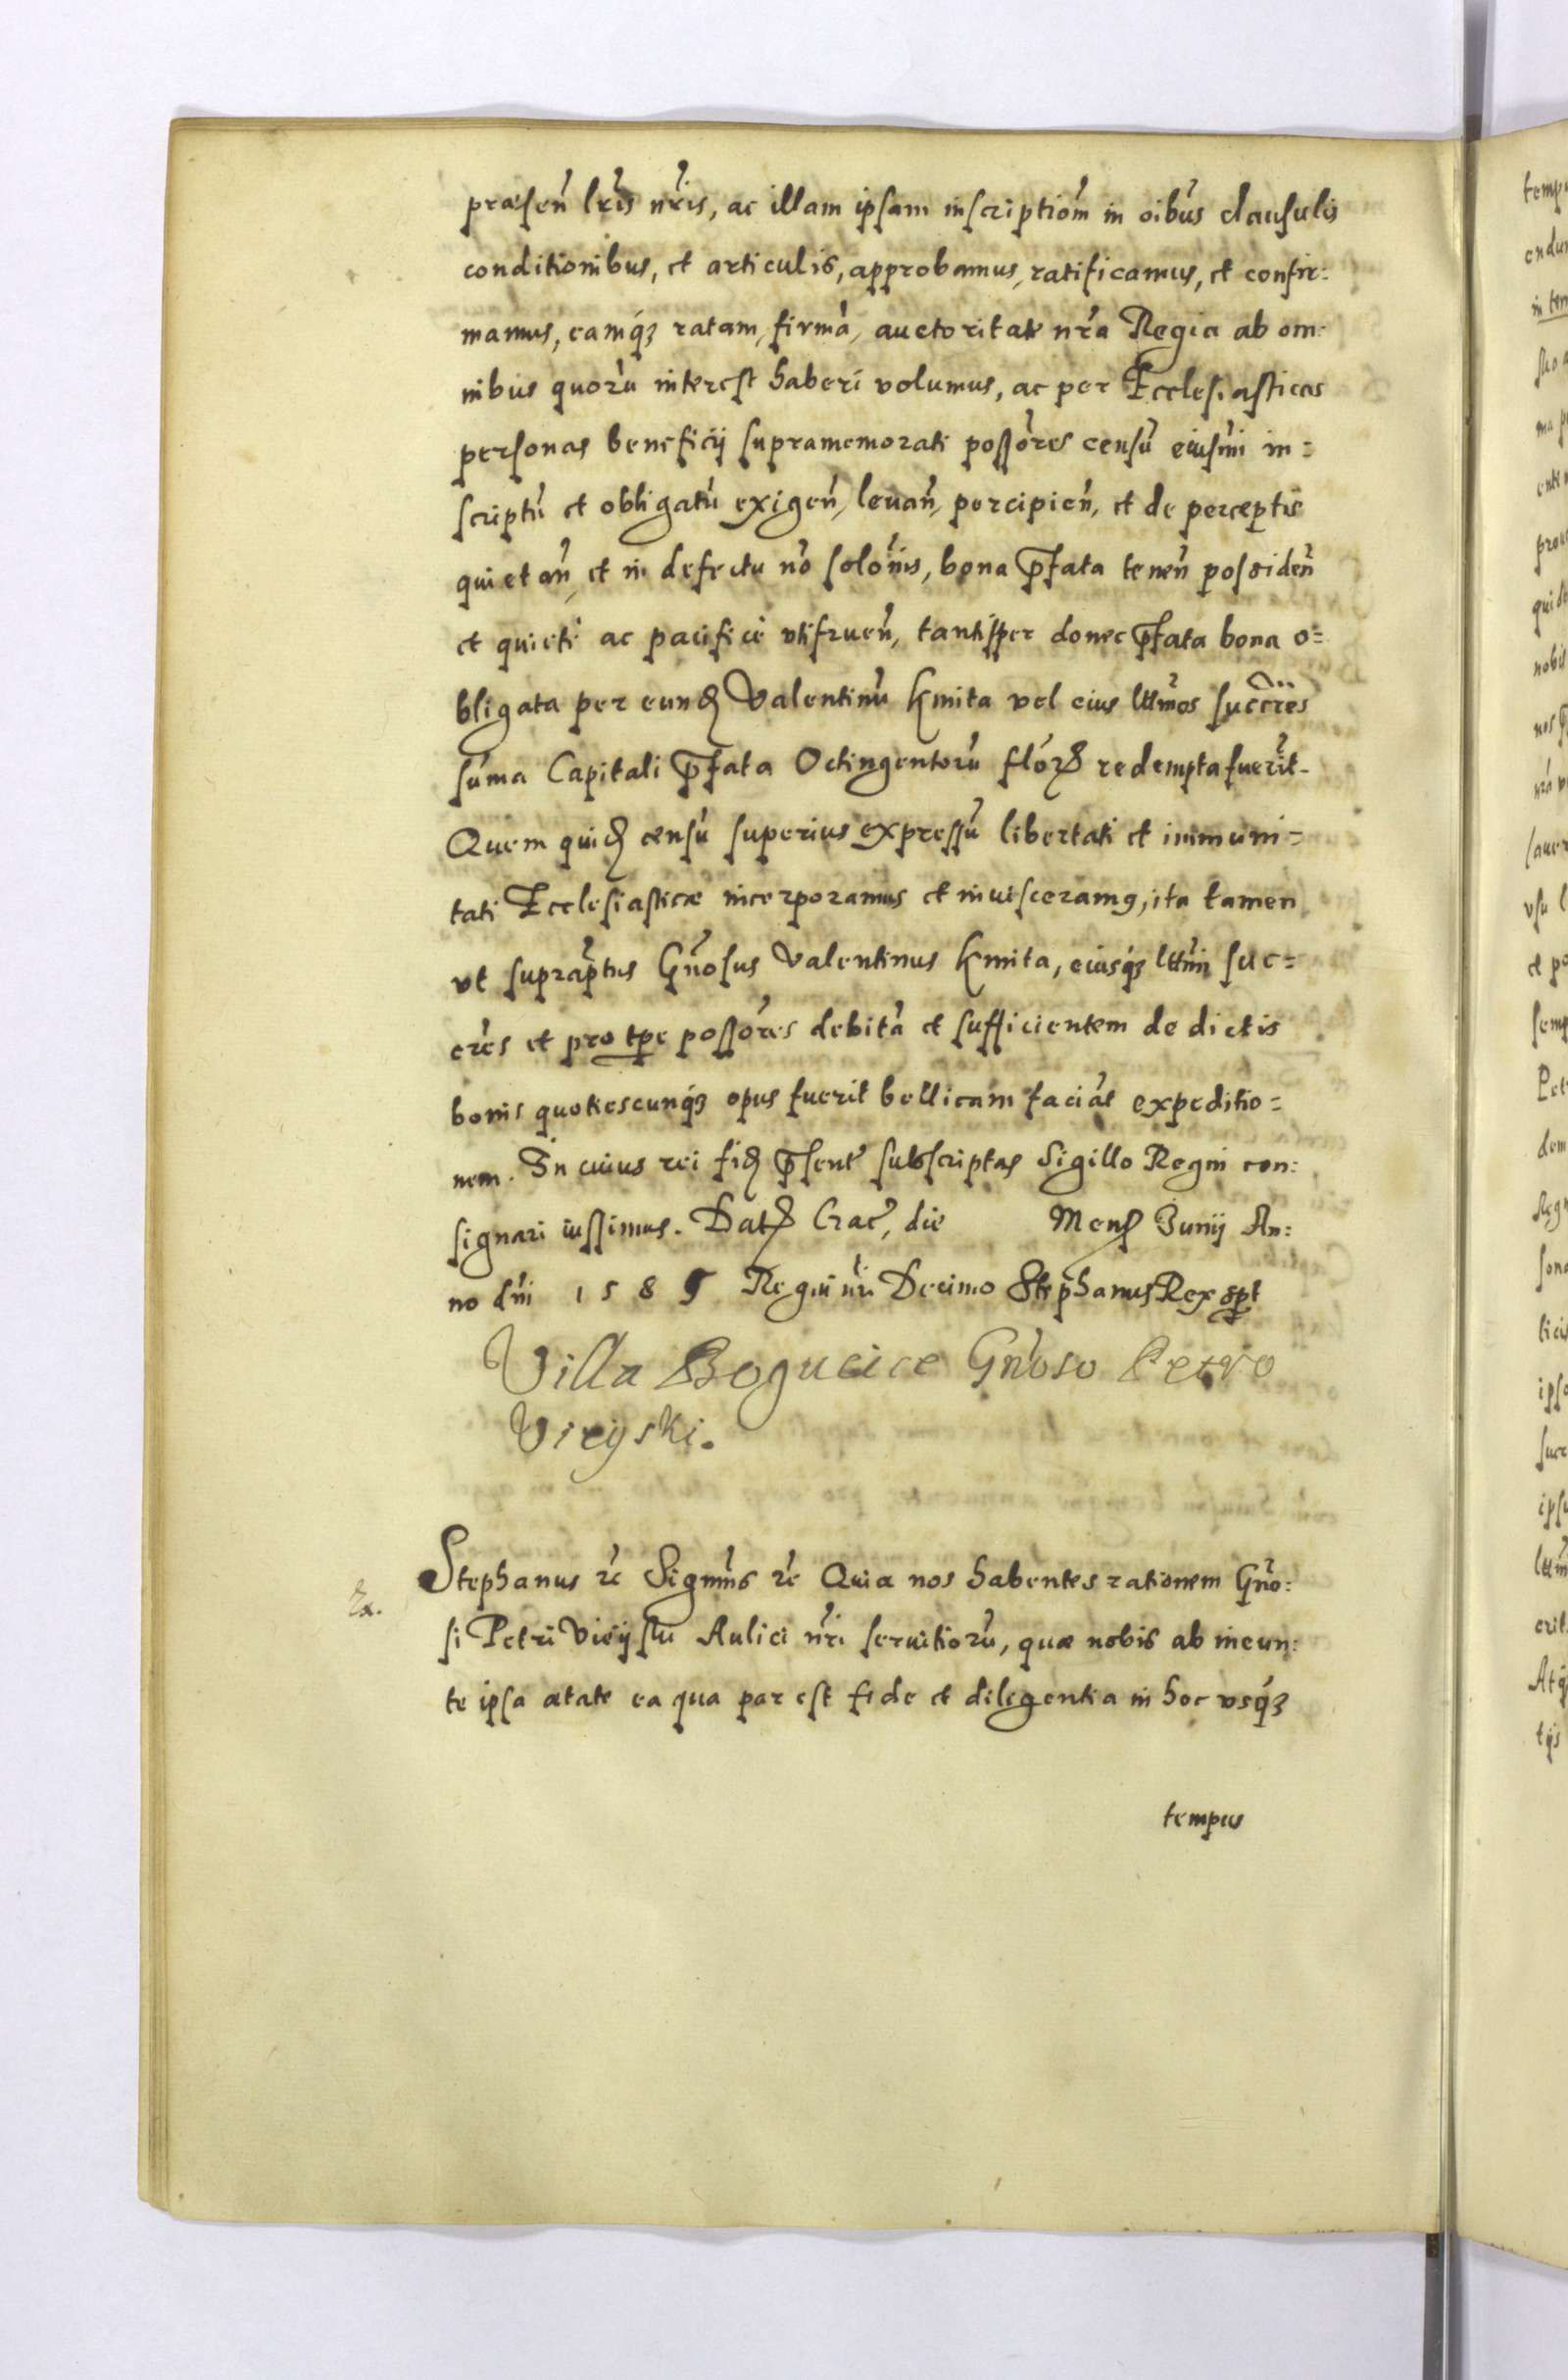 præsen̄ lr̄is nr̄is, ac illam ipsam inscriptiom̄ in oib̄us clausulis
conditionibus, et articulis, approbamus, ratificamus, et confir:
mamus, eamq́ꝫ ratam, firmā, auctoritate nr̄a Regia ab om:
nibus quorū interest haberi volumus, ac per Ecclesiasticas
personas beneficij supramemorati possōres censū eiusm̄i in=
scriptū et obligatū exigen̄, levan̄, percipien̄, et de perceptis
quietan̄, et in defectu nō solōnis, bona p̄fata tenen̄ possiden̄
et quietè ac pacificè utifruen̄, tantisper donec p̄fata bona o=
bligata per eund̄ Valentinū Kmita vel eius lttimos succr̄es
sum̄a Capitali p̄fata Octingentorū flōr redempta fuerīt.
Quem quid̄ censū superius expressū libertati et immuni=
tati Ecclesiasticæ incorporamus et inuisceramꝯ, ita tamen
vt supraptus̄ Gn̄osus Valentinus Kmita, eiusq́ꝫ lttim̄i suc=
cr̄es et pro tp̄e possōres debitā et sufficientem de dictis
bonis quotiescunq́ꝫ opus fuerit bellicam faciāt expeditio=
nem. In cuius rei fid̄ p̄sent̄ subscriptas Sigillo Regni con:
signari iussimus. Dat̄ Crac̄, die Mens̄ Junij An:
no dn̄i 1585 Regni nr̄i Decimo Stephanus Rex spt
Villa Bogucice Gn̄oso Petro
Vieyski.
Stephanus rc̄ Signm̄s rc̄ Quia nos habentes rationem Gn̄o:
si Petri Vieijski Aulici nr̄i seruitiorū, quæ nobis ab ineun:
te ipsa ætate ea qua par est fide et diligentia in hoc vsq́ꝫ
tempus